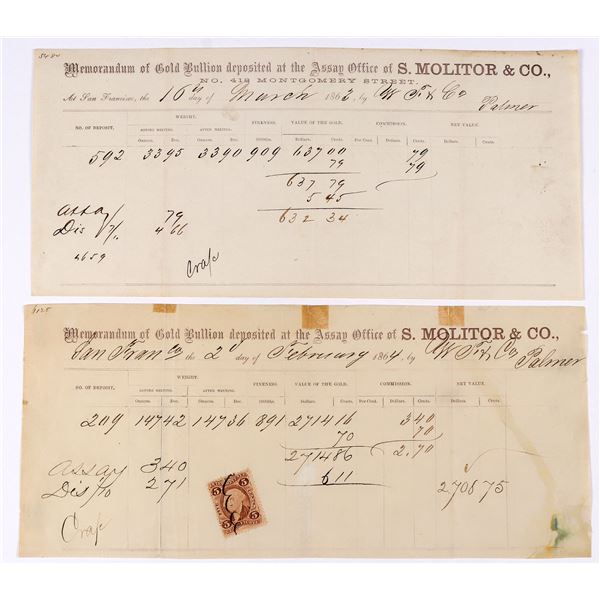 Memorandum of Gold Bullion deposited at the Assay Office of S. MOLITOR & CO.,
NO. 412 MONTGOMERY STREET.
At San Francisco, the 16th day of March 1863, by W F & Co Palmer
NO. OF DEPOSIT. WEIGHT. FINENESS. VALUE OF THE GOLD. COMMISSION. NET VALUE.
BEFORE MELTING. AFTER MELTING.
Ounces. Dec. Ounces. Dec. Dollars. Cents. Per Cent. Dollars. Cents. Dollars. Cents.
592 33 95 33 90 909 637 00 79
79 79
637 79
5 45
Assay 79 632 34
Dis 4 66
4659
Memorandum of Gold Bullion deposited at the Assay Office of S. MOLITOR & CO.,
San Fran Co the 2d day of February 1864, by W F & Co Palmer
NO. OF DEPOSIT. WEIGHT. FINENESS. VALUE OF THE GOLD. COMMISSION. NET VALUE.
BEFORE MELTING. AFTER MELTING.
Ounces. Dec. Ounces. Dec. Dollars. Cents. Per Cent. Dollars. Cents. Dollars. Cents.
209 147 42 147 36 891 2714 16 3 40
70 70
2714 86 2.70
Assay 3 40 6 11
Dis 1/10 2 71 2708 75
5 5
5 5